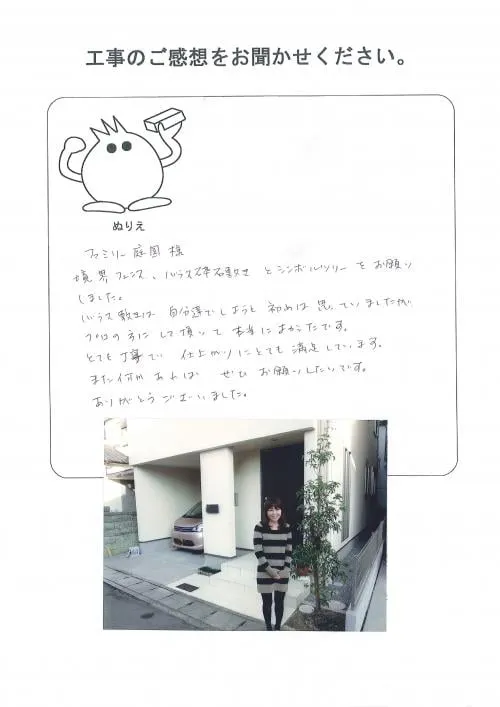 工事のご感想をお聞かせください。
ぬりえ
ファミリー庭園 様
境界フェンス、バラス砕石敷きとシンボルツリーをお願い
しました。
バラス敷きは 自分達でしようと初めは思っていましたが
プロの方にして頂いて本当によかったです。
とても丁寧で 仕上がりにとても満足しています。
また何かあれば ぜひ お願いしたいです。
ありがとうございました。